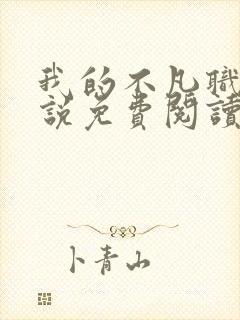 我的不凡職
說免費閱讀
卜青山